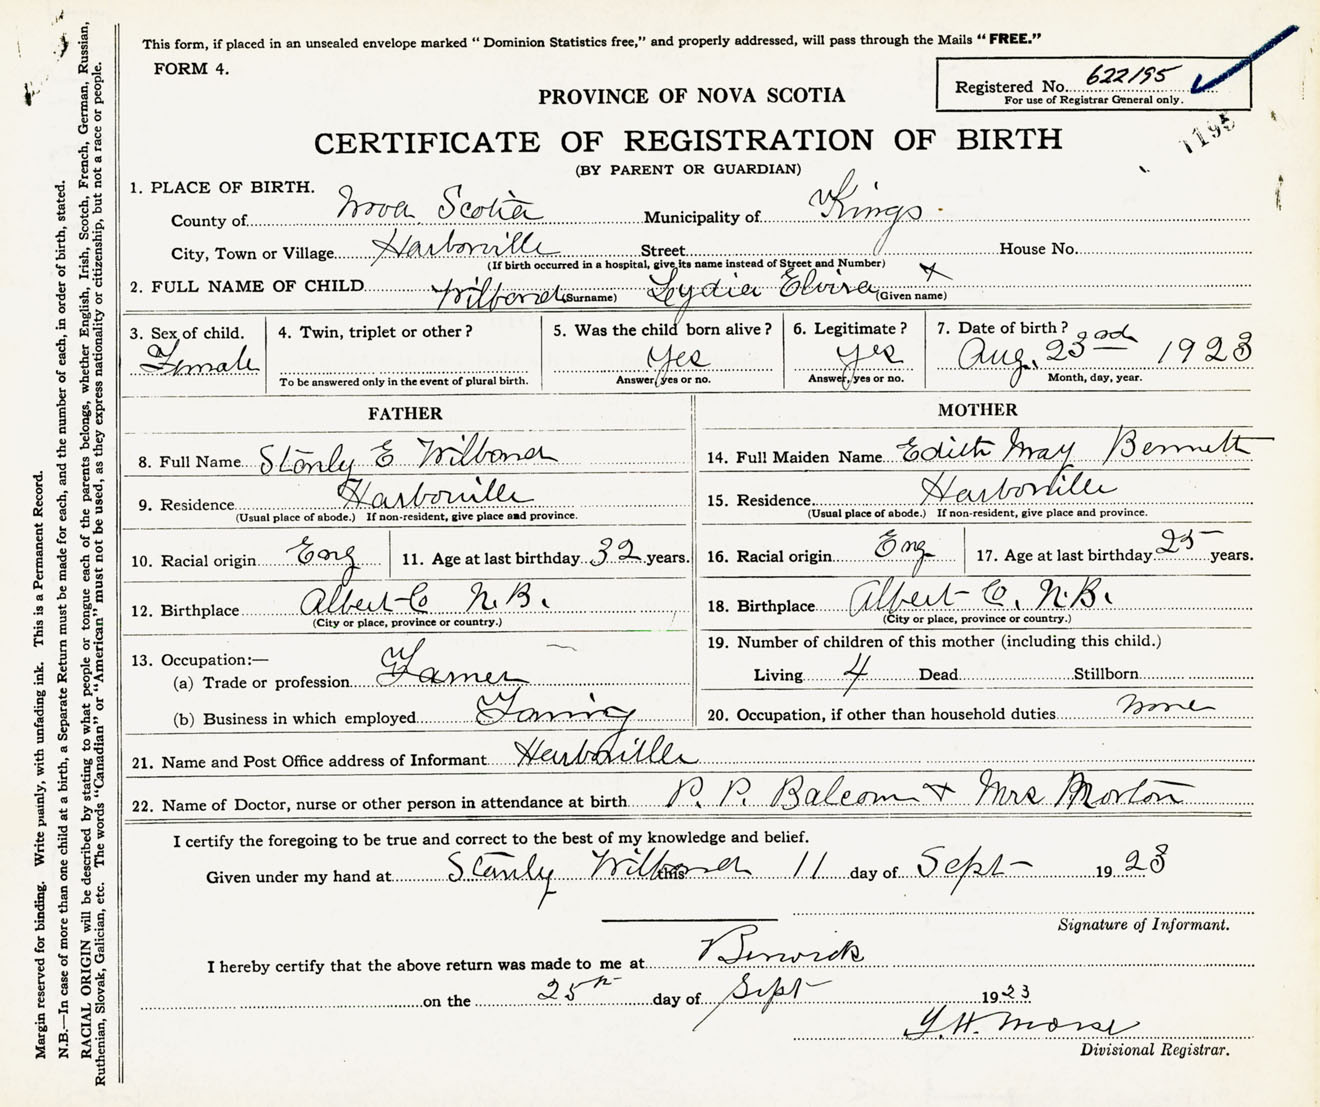 This form, if placed in an unsealed envelope marked " Dominion Statistics free," and properly addressed, will pass through the Mails " FREE."
FORM 4.
Registered No. 622195
For use of Registrar General only.
1195
PROVINCE OF NOVA SCOTIA
CERTIFICATE OF REGISTRATION OF BIRTH
(BY PARENT OR GUARDIAN)
1. PLACE OF BIRTH.
County of Nova Scotia Municipality of Kings
City, Town or Village Harborville Street House No.
(If birth occurred in a hospital, give its name instead of Street and Number)
2. FULL NAME OF CHILD Wilbond (Surname) Lydia Elvira (Given name) X
3. Sex of child. 4. Twin, triplet or other ? 5. Was the child born alive ? 6. Legitimate ? 7. Date of birth ?
Female Yes Yes Aug. 23rd 1923
To be answered only in the event of plural birth. Answer, yes or no. Answer, yes or no. Month, day, year.
FATHER
8. Full Name Stanly E Wilbond
9. Residence Harborville
(Usual place of abode.) If non-resident, give place and province.
10. Racial origin Eng 11. Age at last birthday 32 years.
12. Birthplace Albert Co N.B.
(City or place, province or country.)
13. Occupation:—
(a) Trade or profession Farmer
(b) Business in which employed Faming
MOTHER
14. Full Maiden Name Edith May Bennett
15. Residence Harborville
(Usual place of abode.) If non-resident, give place and province.
16. Racial origin Eng 17. Age at last birthday 25 years.
18. Birthplace Albert Co. N.B.
(City or place, province or country.)
19. Number of children of this mother (including this child.)
Living 4 Dead Stillborn
20. Occupation, if other than household duties none
21. Name and Post Office address of Informant Harborville
22. Name of Doctor, nurse or other person in attendance at birth P. P. Balcom + Mrs Morton
I certify the foregoing to be true and correct to the best of my knowledge and belief.
Given under my hand at Stanly Wilbond this 11 day of Sept 1923
Signature of Informant.
I hereby certify that the above return was made to me at Berwick
on the 25th day of Sept 1923
Y. H. Morse
Divisional Registrar.
Margin reserved for binding. Write plainly, with unfading ink. This is a Permanent Record.
N.B.—In case of more than one child at a birth, a Separate Return must be made for each, and the number of each, in order of birth, stated.
RACIAL ORIGIN will be described by stating to what people or tongue each of the parents belongs, whether English, Irish, Scotch, French, German, Russian,
Ruthenian, Slovak, Galician, etc. The words "Canadian" or "American" must not be used, as they express nationality or citizenship, but not a race or people.